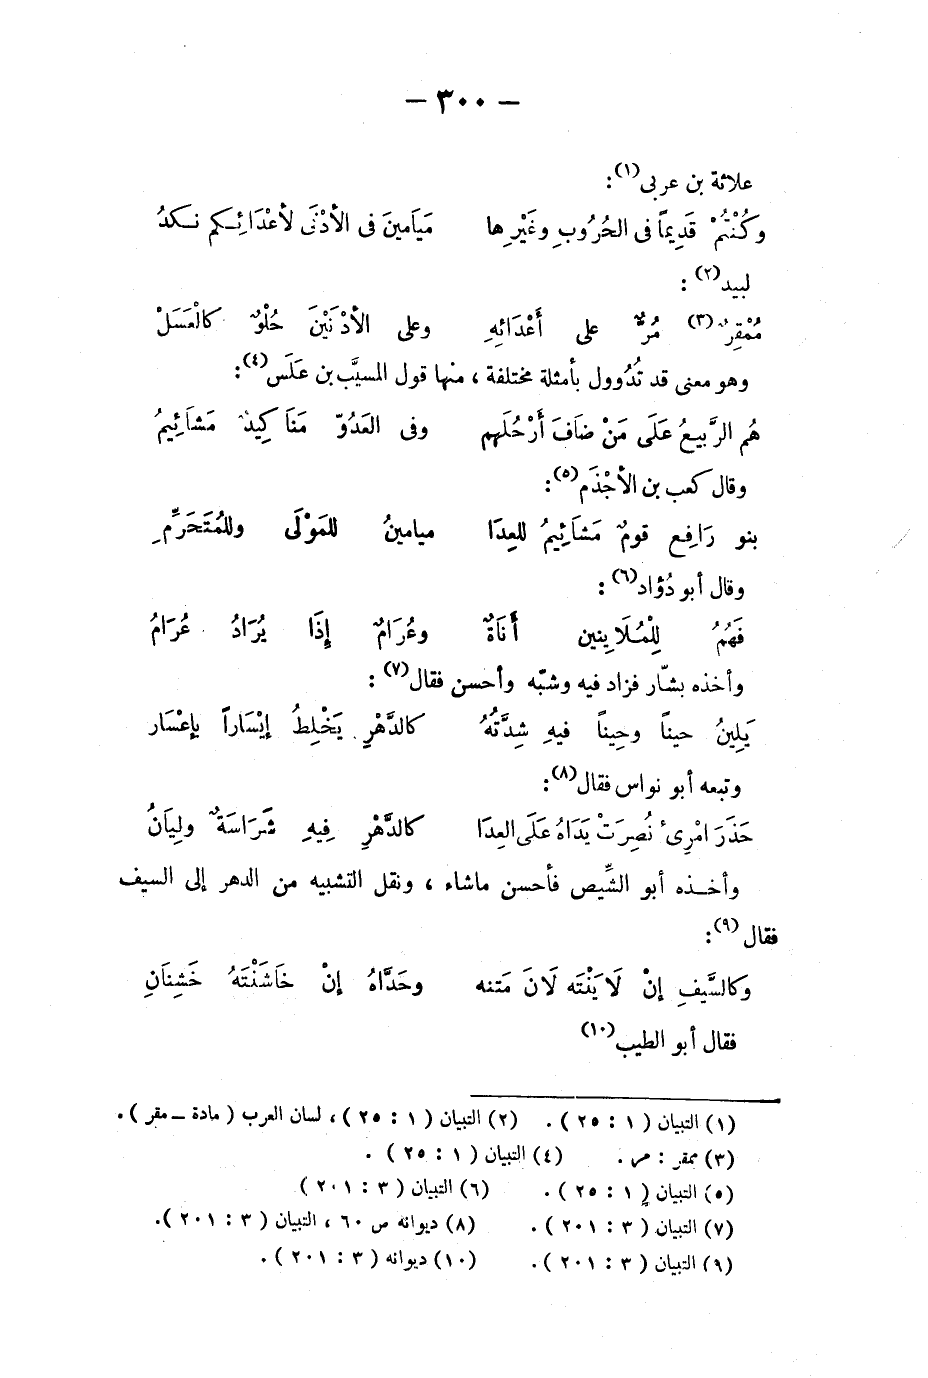 — ٣٠٠ —
علاثة بن عربى(١):
وكُنْتُمْ قَدِيمًا فى الحُرُوبِ وغَيْرِها    مَيَامينَ فى الأدْنَى لأعْدَائِـكم نـكدُ
لبيد(٢) :
مُمْقِرٌ(٣) مُرٌّ على أَعْدَائِهِ    وعلى الأدْنَيْنَ حُلْوٌ كالْعَسَلْ
وهو معنى قد تُدُوول بأمثلة مختلفة ، منها قول المسيَّب بن عَلَس(٤):
هُم الرَّبيعُ عَلَى مَنْ ضَافَ أَرْحُلَهم    وفى العَدُوّ مَنَاكِيدٌ مَشَائِيمُ
وقال كعب بن الأجْذَم(٥):
بنو رَافِعٍ قومٌ مَشَائِيمُ للعِدَا    ميامينُ للمَوْلَى وللمُتَحَرِّمِ
وقال أبو دُؤاد(٦) :
فَهُمُ لِلْمُلَايِنِين أَنَاةٌ    وعُرَامٌ إِذَا يُرَادُ عُرَامُ
وأخذه بشّار فزاد فيه وشبّه وأحسن فقال(٧) :
يَلِينُ حينًا وحِينًا فيهِ شِدَّتُهُ    كالدَّهْرِ يَخْلِطُ إيْسَارًا بإعْسَار
وتبعه أبو نواس فقال(٨):
حَذَرَ امْرِئ نُصِرَتْ يَدَاهُ عَلَى العِدَا    كالدَّهْرِ فِيهِ شَرَاسَةٌ ولِيَانُ
وأخـذه أبو الشِّيص فأحسن ماشاء ، ونقل التشبيه من الدهر إلى السيف
فقال(٩):
وكالسَّيفِ إنْ لَايَنْتَه لَانَ مَتنه    وحَدَّاهُ إنْ خَاشَنْتَهُ خَشِنَانِ
فقال أبو الطيب(١٠)
(١) التبيان ( ١ : ٢٥ ) .    (٢) التبيان ( ١ : ٢٥ ) ، لسان العرب ( مادة ــ مقر ) .
(٣) ممقر : مر .    (٤) التبيان ( ١ : ٢٥ ) .
(٥) التبيان ( ١ : ٢٥ ) .    (٦) التبيان ( ٣ : ٢٠١ )
(٧) التبيان ( ٣ : ٢٠١ ) .    (٨) ديوانه ص ٦٠ ، التبيان ( ٣ : ٢٠١ ).
(٩) التبيان ( ٣ : ٢٠١ ) .    (١٠) ديوانه ( ٣ : ٢٠١ ) .